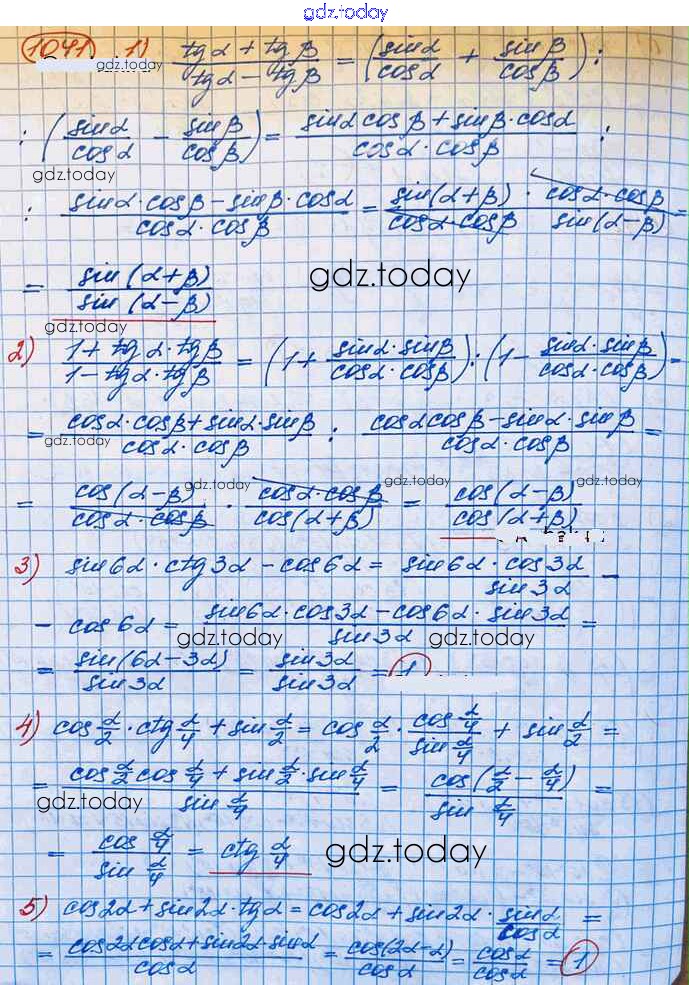 gdz.today
1041 1) (tgα + tgβ)/(tgα − tgβ) = (sinα/cosα + sinβ/cosβ) :
gdz.today
: (sinα/cosα − sinβ/cosβ) = (sinα cosβ + sinβ·cosα)/(cosα·cosβ) :
gdz.today
: (sinα·cosβ − sinβ·cosα)/(cosα·cosβ) = sin(α+β)/(cosα·cosβ) · (cosα·cosβ)/sin(α−β) =
= sin(α+β)/sin(α−β)
gdz.today
gdz.today
2) (1 + tgα·tgβ)/(1 − tgα·tgβ) = (1 + (sinα·sinβ)/(cosα·cosβ)) : (1 − (sinα·sinβ)/(cosα·cosβ)) =
= (cosα·cosβ + sinα·sinβ)/(cosα·cosβ) : (cosα cosβ − sinα·sinβ)/(cosα·cosβ) =
gdz.today
= cos(α−β)/(cosα·cosβ) · (cosα·cosβ)/cos(α+β) = cos(α−β)/cos(α+β)
gdz.today gdz.today gdz.today
3) sin6α·ctg3α − cos6α = (sin6α·cos3α)/sin3α −
− cos6α = (sin6α·cos3α − cos6α·sin3α)/sin3α =
gdz.today gdz.today
= sin(6α−3α)/sin3α = sin3α/sin3α = 1
4) cos α/2 · ctg α/4 + sin α/2 = cos α/2 · (cos α/4)/(sin α/4) + sin α/2 =
= (cos α/2 cos α/4 + sin α/2 · sin α/4)/(sin α/4) = cos(α/2 − α/4)/(sin α/4) =
gdz.today
= (cos α/4)/(sin α/4) = ctg α/4
gdz.today
5) cos2α + sin2α·tgα = cos2α + sin2α · sinα/cosα =
= (cos2α cosα + sin2α·sinα)/cosα = cos(2α−α)/cosα = cosα/cosα = 1